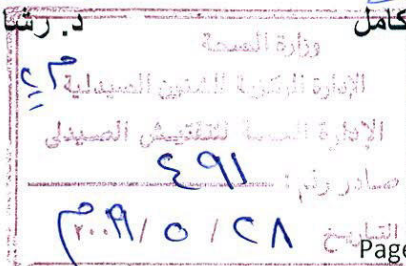 د. رشا كامل
وزارة الصحة
الإدارة المركزية للشئون الصيدلية
الإدارة العامة للتفتيش الصيدلى
صادر رقم : ٤٩١
التاريخ ٢٨ / ٥ / ٢٠٠٩ م
Page